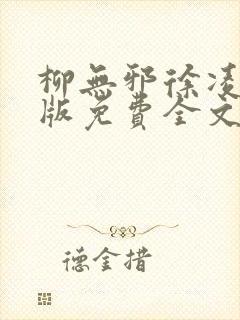 柳無邪徐凌
版免費全文
德金措